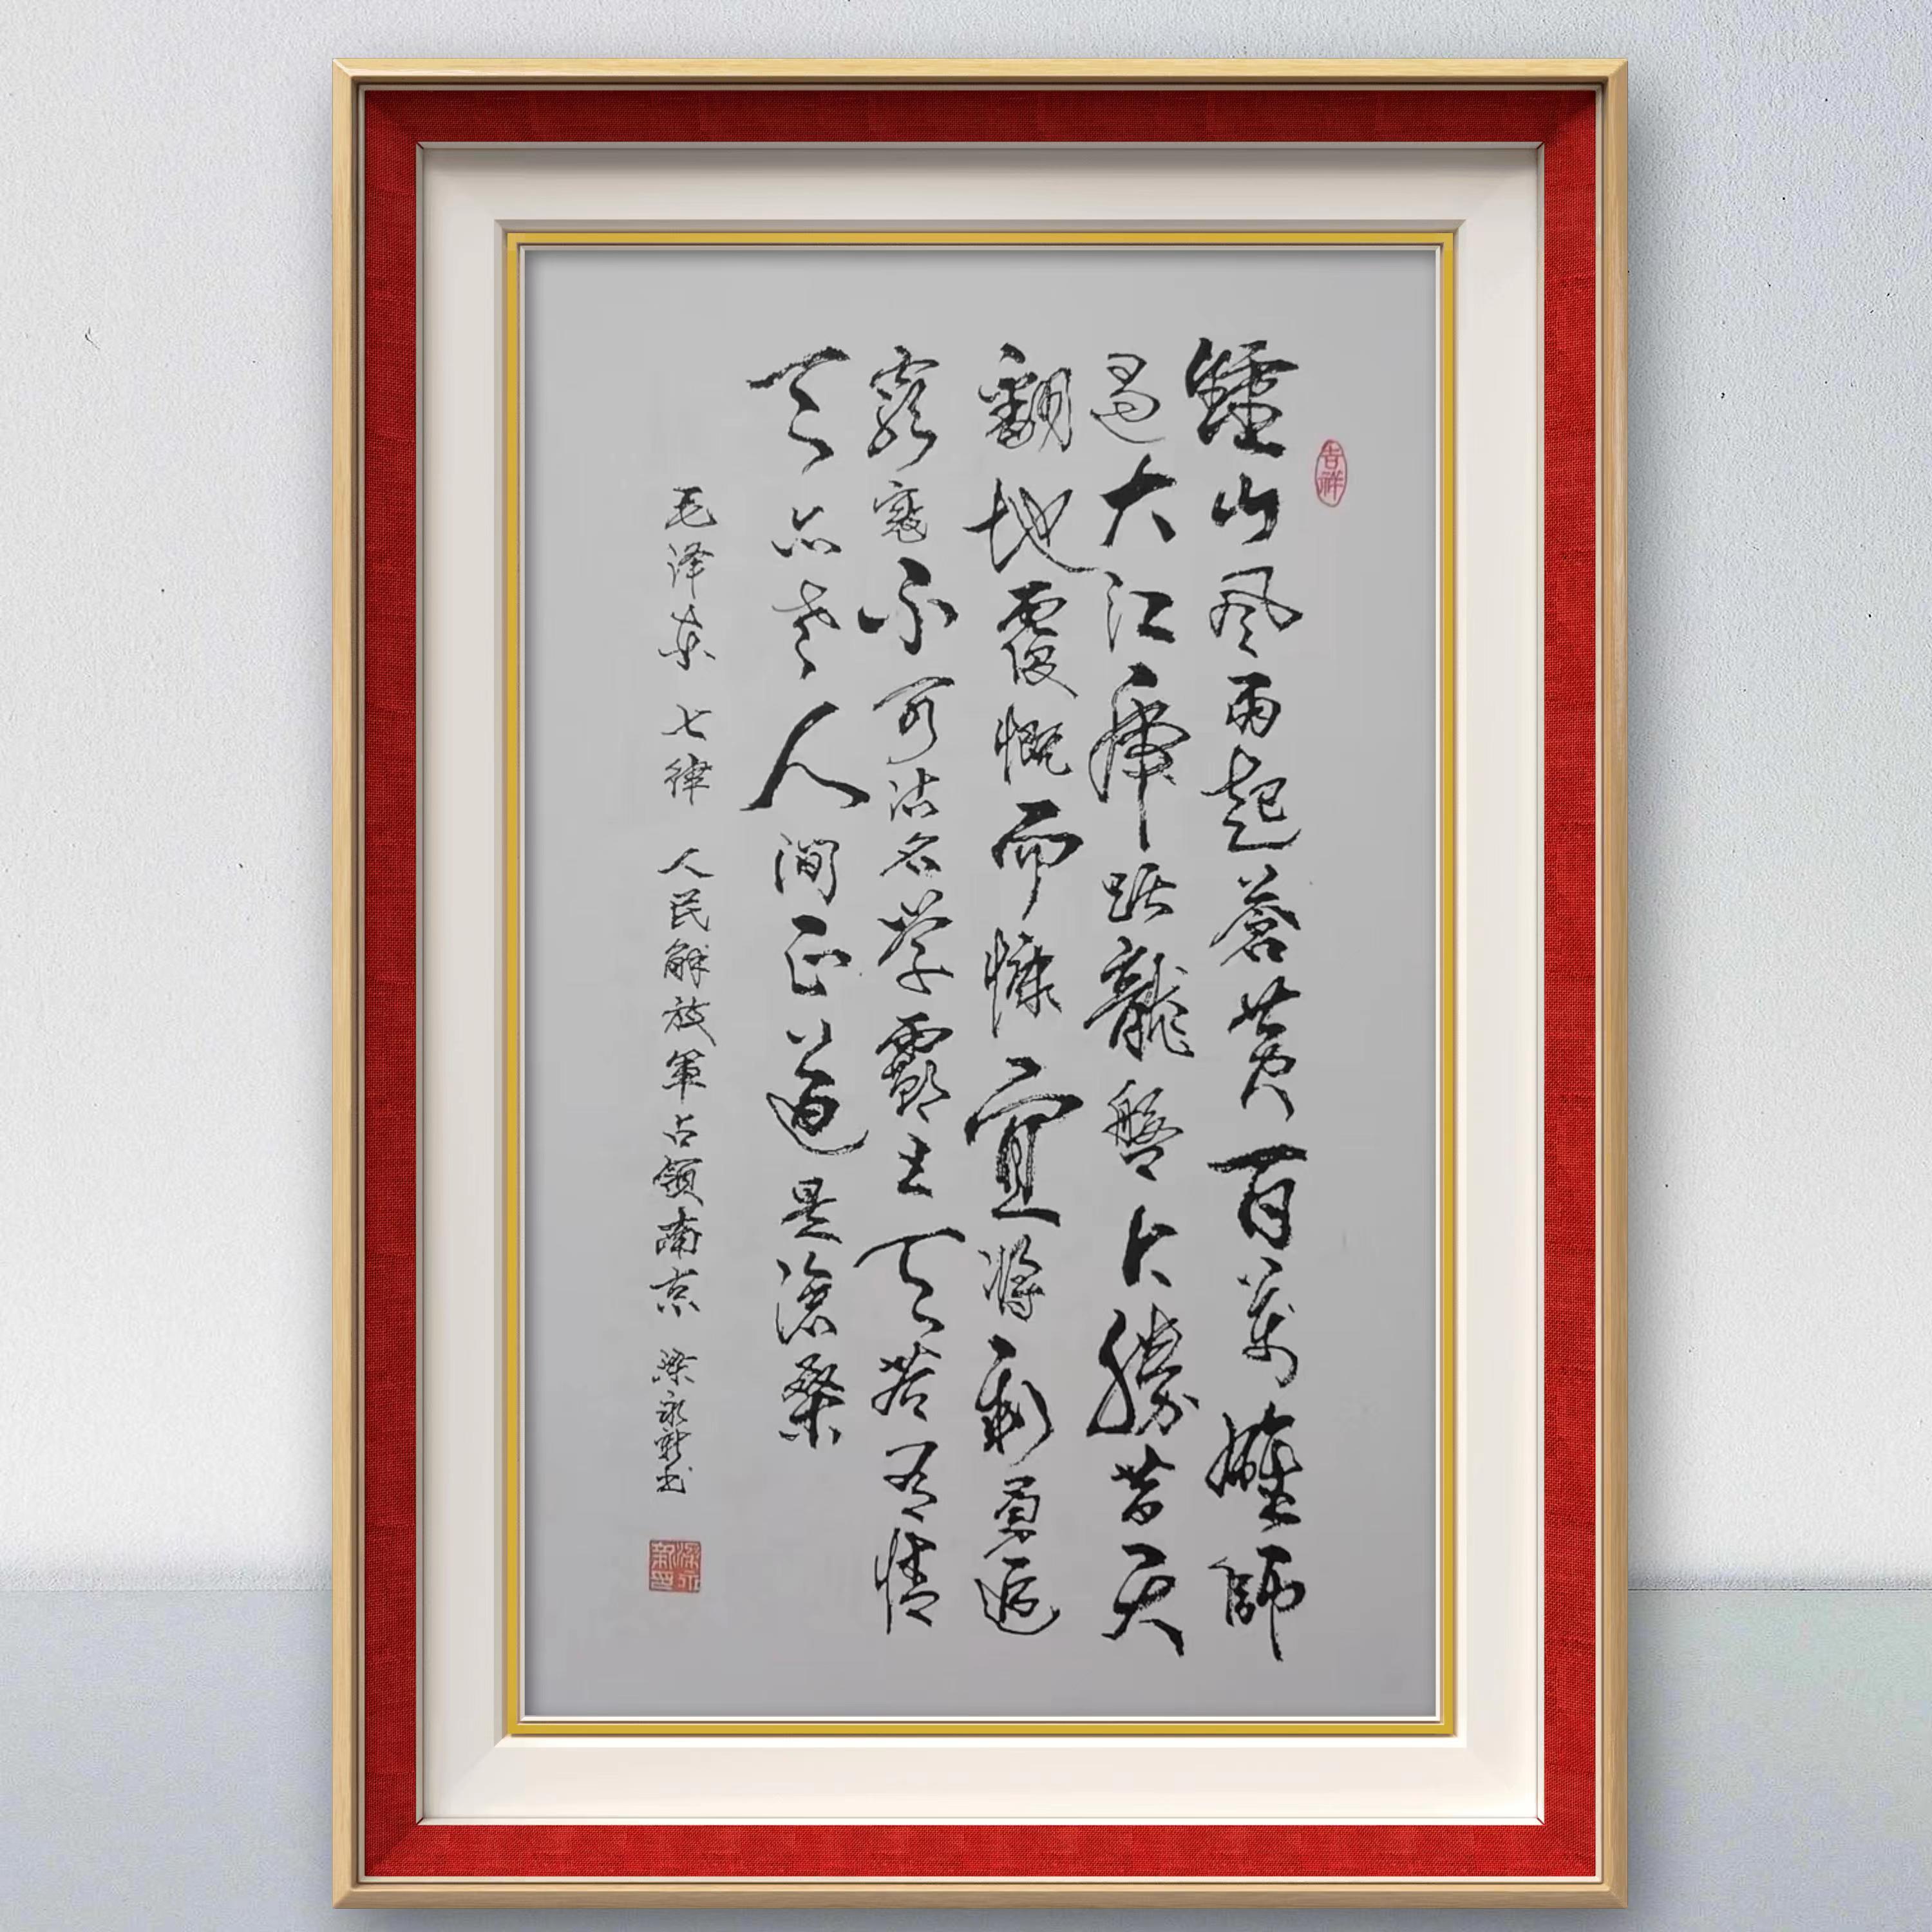 吉祥
鍾山风雨起蒼黄百萬雄師
過大江虎踞龍盤今勝昔天
翻地覆慨而慷宜将剩勇追
窮寇不可沽名学霸王天若有情
天亦老人间正道是滄桑
毛泽东 七律 人民解放軍占领南京 梁永新书
梁永新印